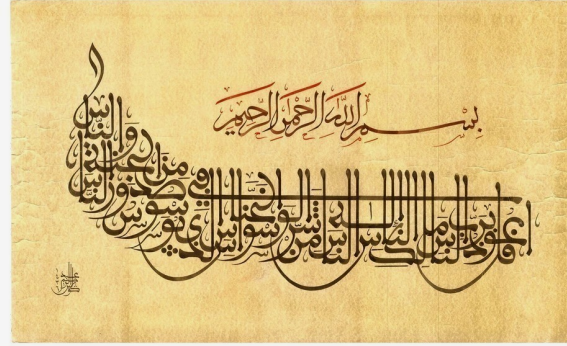 بِسْمِ اللَّهِ الرَّحْمَٰنِ الرَّحِيمِ
قل أعوذ برب الناس ملك الناس إله الناس من شر الوسواس الخناس الذي يوسوس في صدور الناس من الجنة والناس